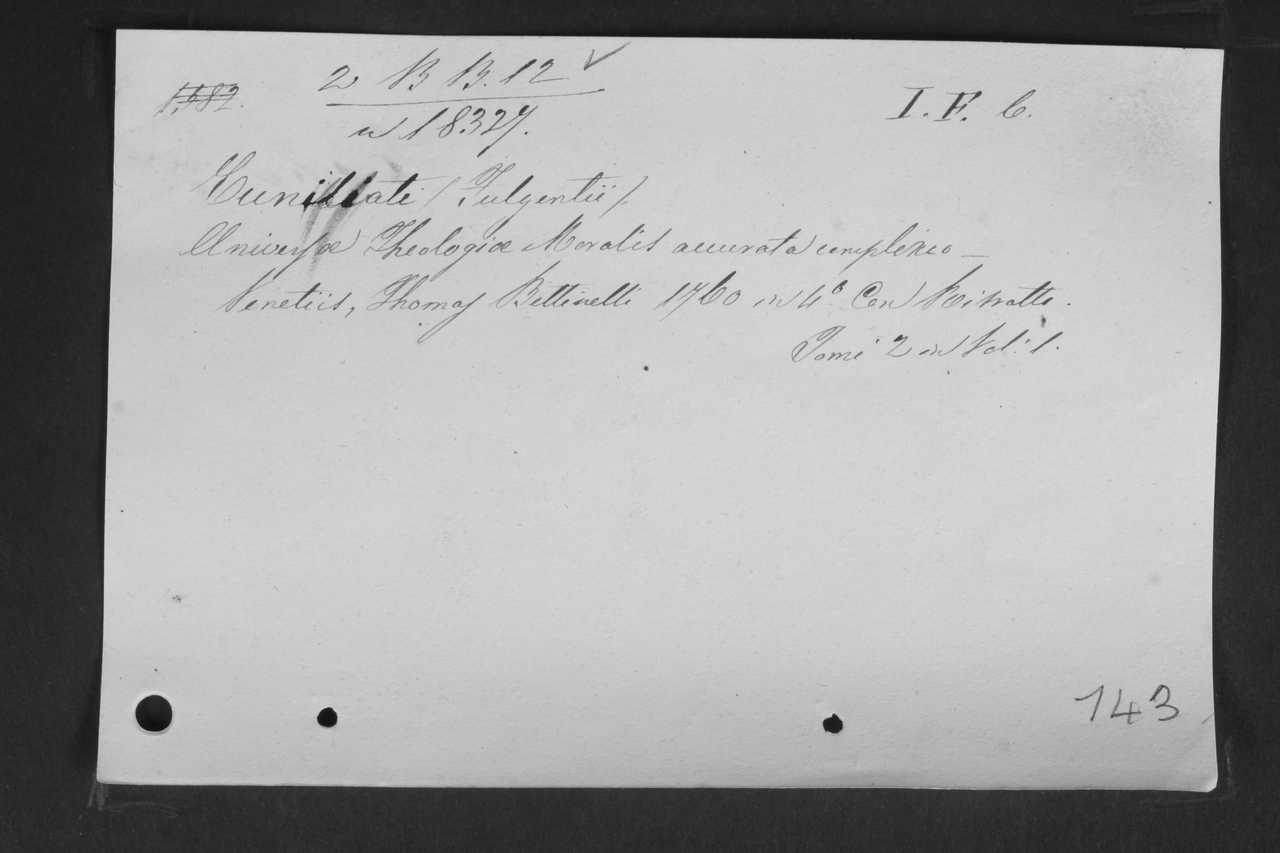 1,182.
2 B B. 12 ✓
n 18327.
I. F. 6.
Cuniliati (Fulgentii)
Universæ Theologiæ Moralis accurata complexio _
Venetiis, Thomas Bettinelli 1760 in 4º. Con Ritratto.
Tomi 2 in Vol: 1.
143